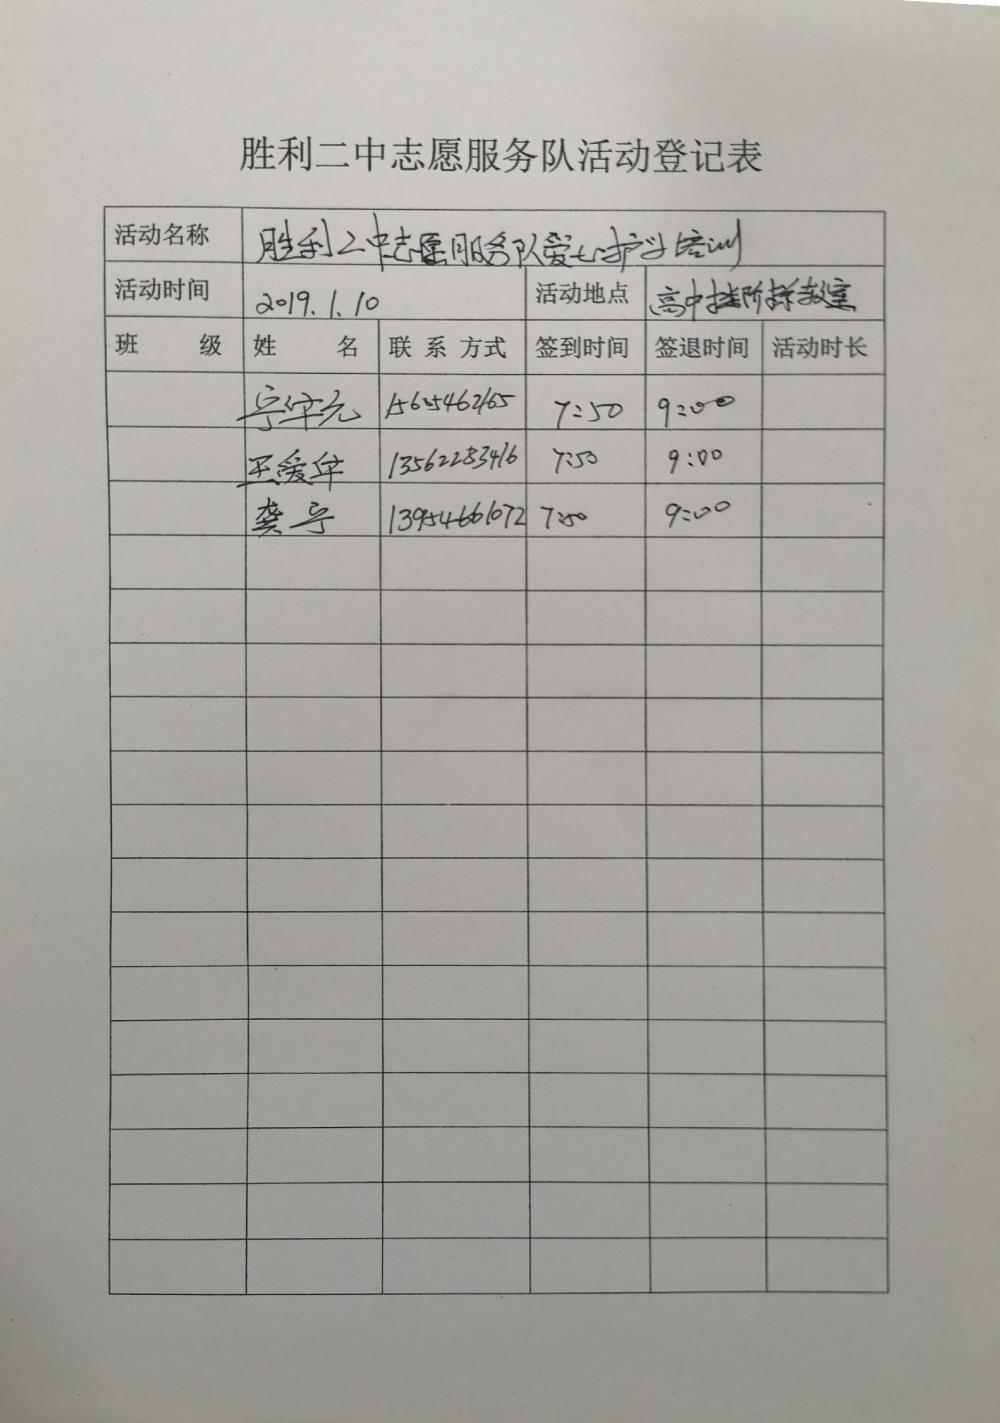 胜利二中志愿服务队活动登记表
活动名称 胜利二中志愿服务队爱心护学培训
活动时间 2019.1.10 活动地点 高中楼阶梯教室
班 级 姓 名 联 系 方式 签到时间 签退时间 活动时长
15605462165 7:50 9:00
王爱华 13562283416 7:50 9:00
龚宁 13954661072 7:50 9:00